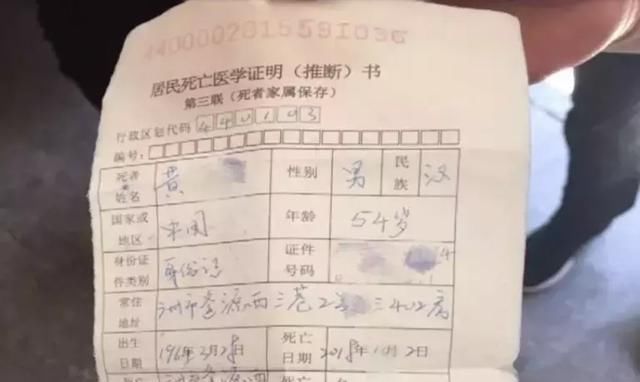 4400002015591036
居民死亡医学证明（推断）书
第三联（死者家属保存）
行政区划代码 440103
编号：
死者姓名 黄 性别 男 民族 汉
国家或地区 中国 年龄 54岁
身份证件类别 身份证 证件号码 4
常住地址 州市 源西三巷2 三402房
出生日期 196 年3月2 日 死亡日期 2018年10月2日